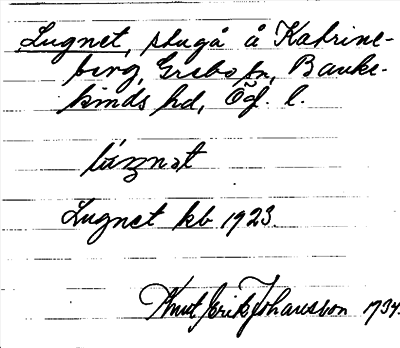 Lugnet, stuga å Katrine-
berg, Grebo sn, Banke-
kinds hd, Ög. l.
lúŋnət
Lugnet kb 1923.
Knut Erik Johansson 1934.